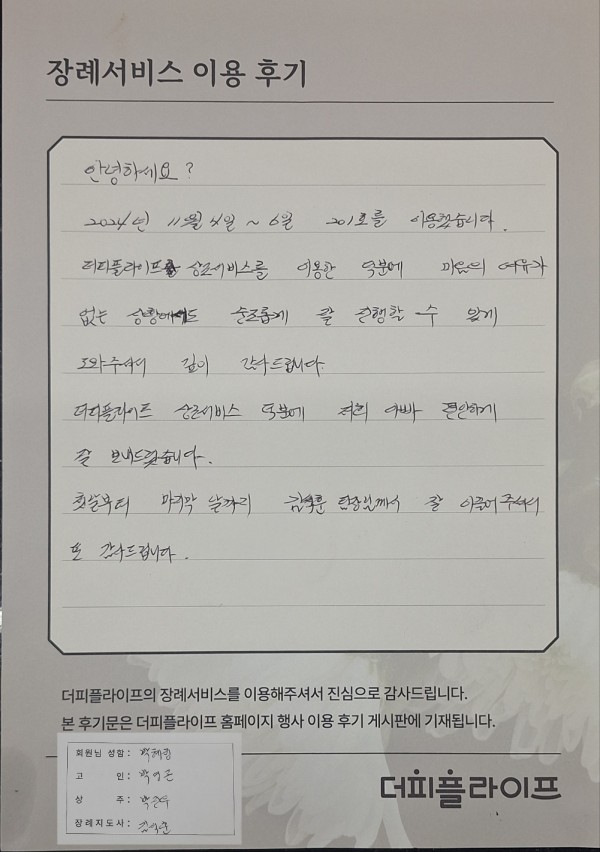 장례서비스 이용 후기
안녕하세요?
2024년 11월 4일 ~ 6일 201호를 이용했습니다.
더피플라이프 상조서비스를 이용한 덕분에 마음의 여유가
없는 상황에서도 순조롭게 잘 진행할 수 있게
도와주셔서 깊이 감사드립니다.
더피플라이프 상조서비스 덕분에 저희 아빠 편안하게
잘 보내드렸습니다.
첫날부터 마지막 날까지 팀장님께서 잘 이끌어주셔서
또 감사드립니다.
더피플라이프의 장례서비스를 이용해주셔서 진심으로 감사드립니다.
본 후기문은 더피플라이프 홈페이지 행사 이용 후기 게시판에 기재됩니다.
회원님 성함:
고 인:
상 주:
장례지도사:
더피플라이프